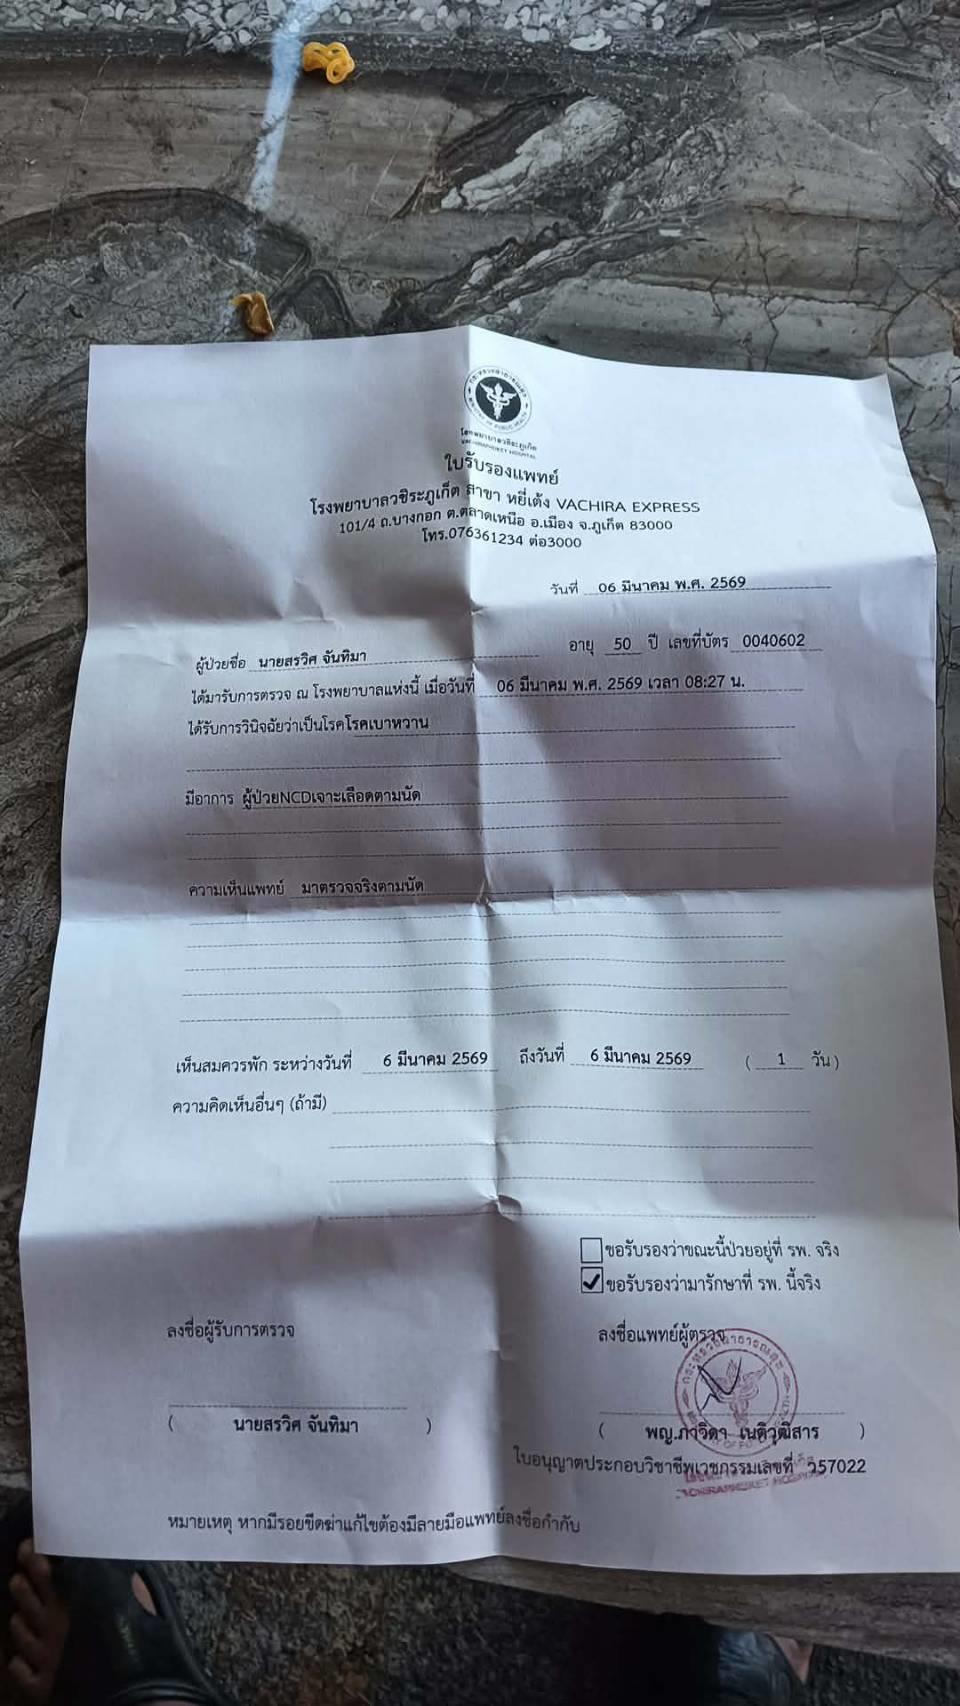 โรงพยาบาลวชิระภูเก็ต
VACHIRAPHUKET HOSPITAL
ใบรับรองแพทย์
โรงพยาบาลวชิระภูเก็ต สาขา หยี่เต้ง VACHIRA EXPRESS
101/4 ถ.บางกอก ต.ตลาดเหนือ อ.เมือง จ.ภูเก็ต 83000
โทร.076361234 ต่อ3000
วันที่ 06 มีนาคม พ.ศ. 2569
ผู้ป่วยชื่อ นายสรวิศ จันทิมา อายุ 50 ปี เลขที่บัตร 0040602
ได้มารับการตรวจ ณ โรงพยาบาลแห่งนี้ เมื่อวันที่ 06 มีนาคม พ.ศ. 2569 เวลา 08:27 น.
ได้รับการวินิจฉัยว่าเป็นโรคโรคเบาหวาน
มีอาการ ผู้ป่วยNCDเจาะเลือดตามนัด
ความเห็นแพทย์ มาตรวจจริงตามนัด
เห็นสมควรพัก ระหว่างวันที่ 6 มีนาคม 2569 ถึงวันที่ 6 มีนาคม 2569 ( 1 วัน )
ความคิดเห็นอื่นๆ (ถ้ามี)
ขอรับรองว่าขณะนี้ป่วยอยู่ที่ รพ. จริง
ขอรับรองว่ามารักษาที่ รพ. นี้จริง
ลงชื่อผู้รับการตรวจ ลงชื่อแพทย์ผู้ตรวจ
( นายสรวิศ จันทิมา ) ( พญ.ภาวิดา เนติวุฒิสาร )
ใบอนุญาตประกอบวิชาชีพเวชกรรมเลขที่ ว57022
หมายเหตุ หากมีรอยขีดฆ่าแก้ไขต้องมีลายมือแพทย์ลงชื่อกำกับ